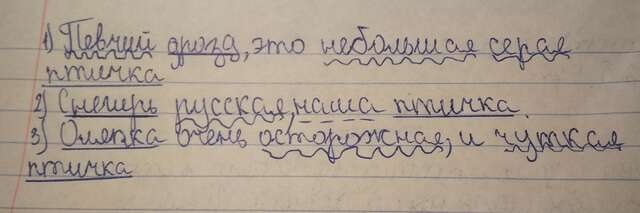 1) Певчий дрозд, это небольшая серая
птичка
2) Снегирь русская, наша птичка.
3) Оляпка очень осторожная, и чуткая
птичка